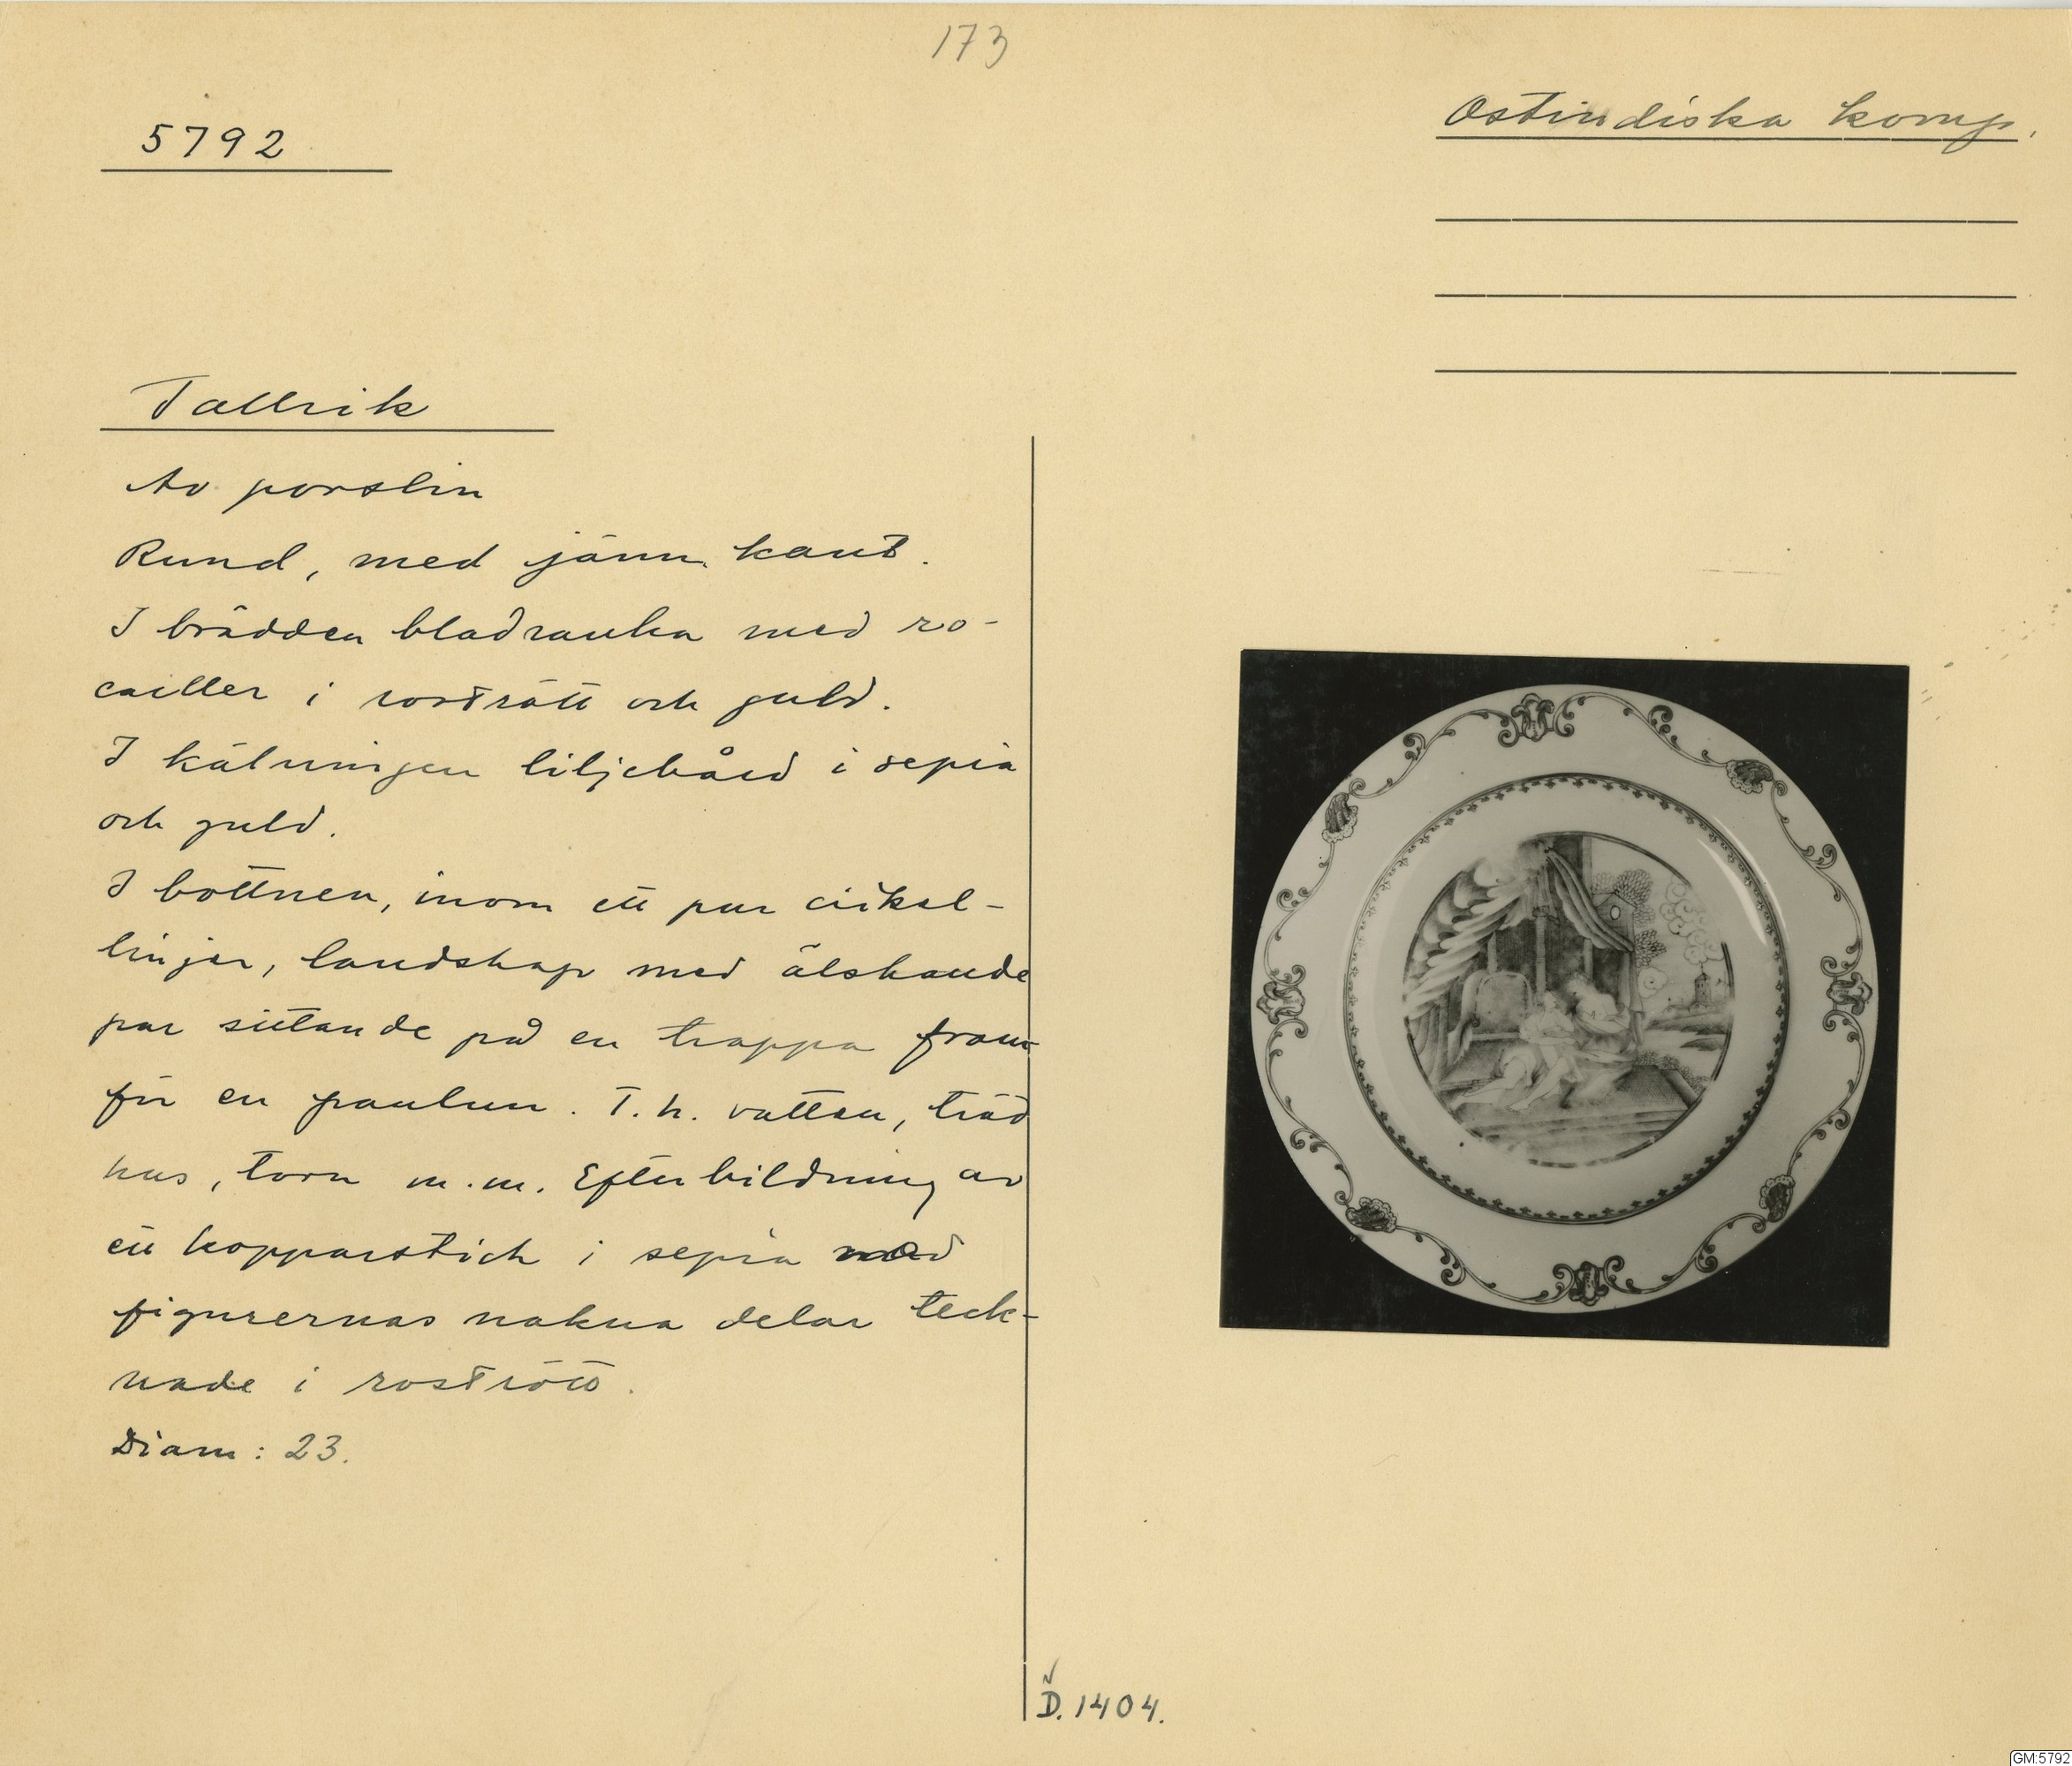 173
5792
Ostindiska komp.
Tallrik
Av porslin
Rund, med jämn kant.
I brädden bladranka med ro-
cailler i rostrött och guld.
I kälningen liljebård i sepia
och guld.
I bottnen, inom ett par cirkel-
linjer, landskap med älskande
par sittande på en trappa fram-
för en paulun. T.h. vatten, träd
hus, torn m.m. Efterbildning av
ett kopparstick i sepia med
figurernas nakna delar teck-
nade i rostrött.
Diam: 23.
D.1404.
GM:5792